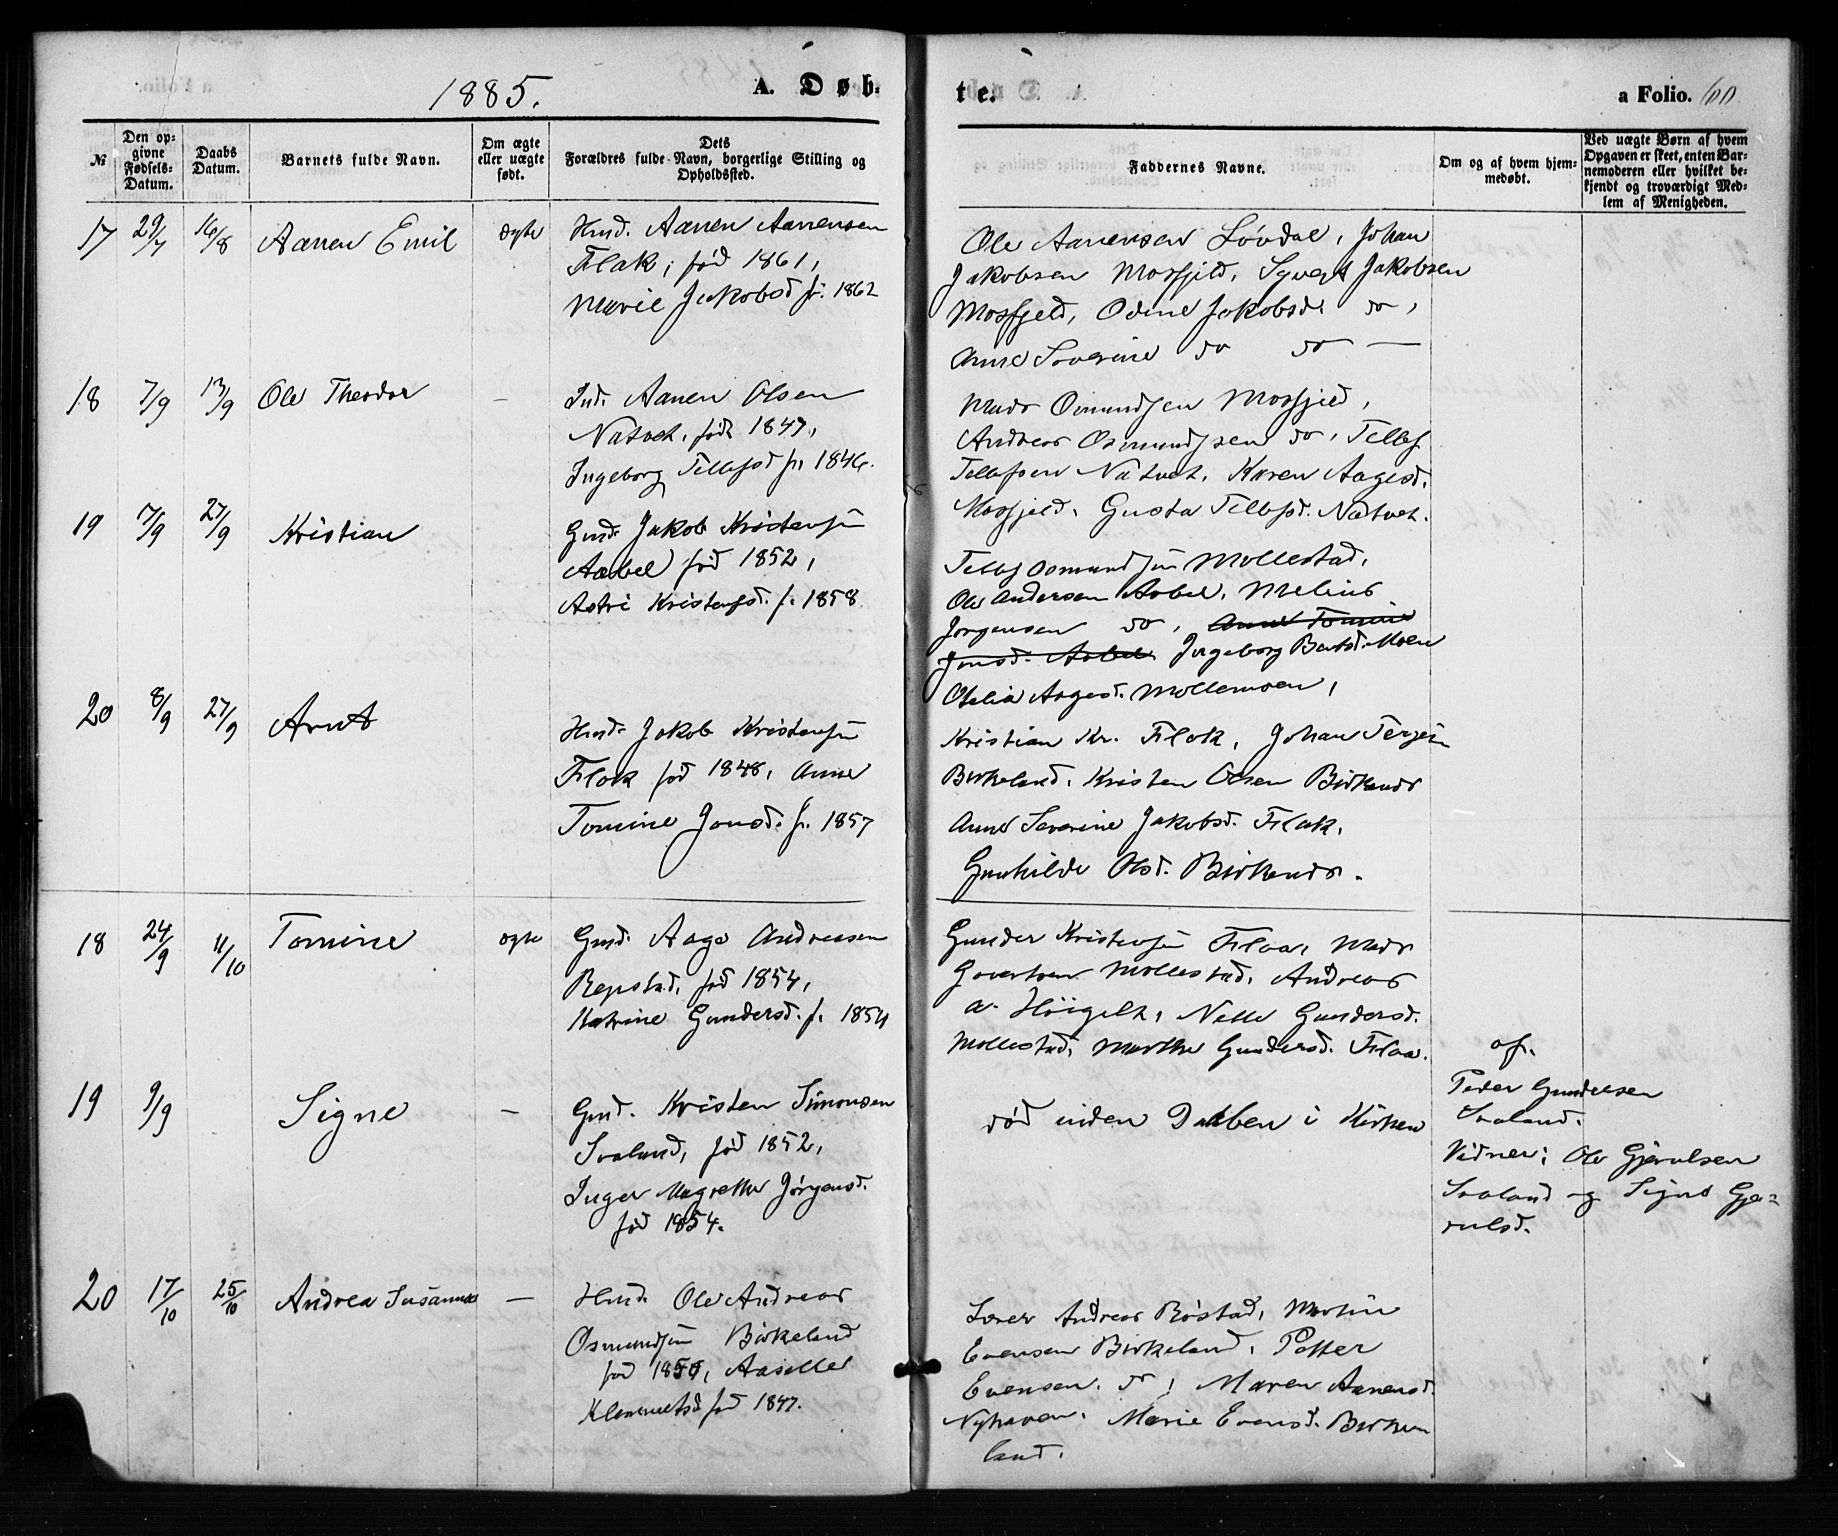 1885.
A. Døb-
te.
a Folio. 60
№
Den opgivne Fødsels-Datum.
Daabs Datum.
Barnets fulde Navn.
Om ægte eller uægte født.
Dets Forældres fulde Navn, borgerlige Stilling og Opholdssted.
Faddernes Navne.
Om og af hvem hjemmedøbt.
Ved uægte Børn af hvem Opgaven er skeet, enten Barnemoderen eller hvilket bekjendt og troværdigt Medlem af Menigheden.
17 29/7 16/8 Aanen Emil ægte Hmd. Aanen Aanensen
Flak, fød 1861,
Marie Jakobsd f. 1862
Ole Aanensen Løvdal, Johan
Jakobsen Mosfjeld, Syvert Jakobsen
Mosfjeld, Odine Jakobsd. do,
Anne Severine do do —
18 7/9 13/9 Ole Theodor — Ind. Aanen Olsen
Natvet, fød 1847,
Ingeborg Tellefsd f. 1846.
Mads Osmundsen Mosfjeld,
Andreas Osmundsen do, Tellef
Tellefsen Natvet, Karen Aagesd.
Mosfjeld, Gusta Tellefsd. Natvet.
19 7/9 27/9 Kristian Gmd. Jakob Kristensen
Aabel fød 1852,
Astri Kristensd. f. 1858
Tellef Osmundsen Mollestad,
Ole Andersen Aabel, Melius
Jørgensen do, Anne Tomine
Jonsd. Aabel. Ingeborg Bentsd. Moen
Otelia Aagesd. Mollemoen,
20 8/9 27/9 Arnt Hmd. Jakob Kristensen
Flak fød 1848, Anne
Tomine Jonsd. f. 1857
Kristian Kr. Flak, Johan Terjesen
Birkeland, Kristen Olsen Birkenes
Anne Severine Jakobsd. Flak,
Gunhilde Olsd. Birkenes.
18 24/9 11/10 Tomine ægte Gmd. Aage Andreasen
Repstad, fød 1854,
Katrine Gundersd. f. 1854
Gunder Kristensen Flaa, Mads
Govertsen Mollestad, Andreas
A. Høigilt, Nelle Gundersd.
Mollestad, Marthe Gundersd. Flaa.
19 9/9 Signe — Gmd. Kristen Simonsen
Svaland, fød 1852,
Inger Magrethe Jørgensd.
fød 1854.
død inden Daaben i Kirken
af
Peder Gundersen
Svaland.
Vidner: Ole Gjerulsen
Svaland og Signe Gje-
rulsd.
20 17/10 25/10 Andrea Susanne — Hmd. Ole Andreas
Osmundsen Birkeland
fød 1850, Aasille
Klemmetsd fød 1847.
Lærer Andreas Røstad, Martin
Evensen Birkeland, Petter
Evensen do, Maren Aanensd.
Nyhaven, Marie Evensd. Birke-
land.